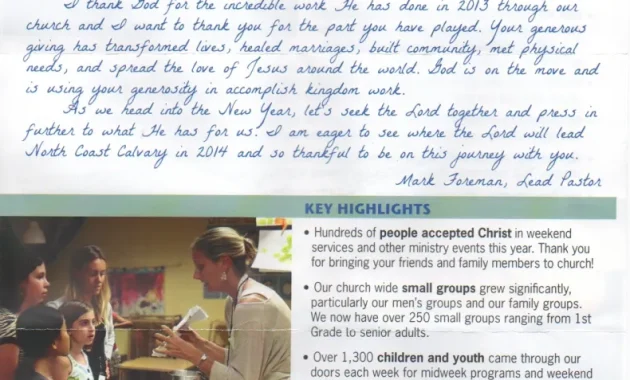 I thank God for the incredible work He has done in 2013 through our
church and I want to thank you for the part you have played. Your generous
giving has transformed lives, healed marriages, built community, met physical
needs, and spread the love of Jesus around the world. God is on the move and
is using your generosity in accomplish kingdom work.
As we head into the New Year, let's seek the Lord together and press in
further to what He has for us. I am eager to see where the Lord will lead
North Coast Calvary in 2014 and so thankful to be on this journey with you.
Mark Foreman, Lead Pastor
KEY HIGHLIGHTS
• Hundreds of people accepted Christ in weekend
services and other ministry events this year. Thank you
for bringing your friends and family members to church!
• Our church wide small groups grew significantly,
particularly our men's groups and our family groups.
We now have over 250 small groups ranging from 1st
Grade to senior adults.
• Over 1,300 children and youth came through our
doors each week for midweek programs and weekend